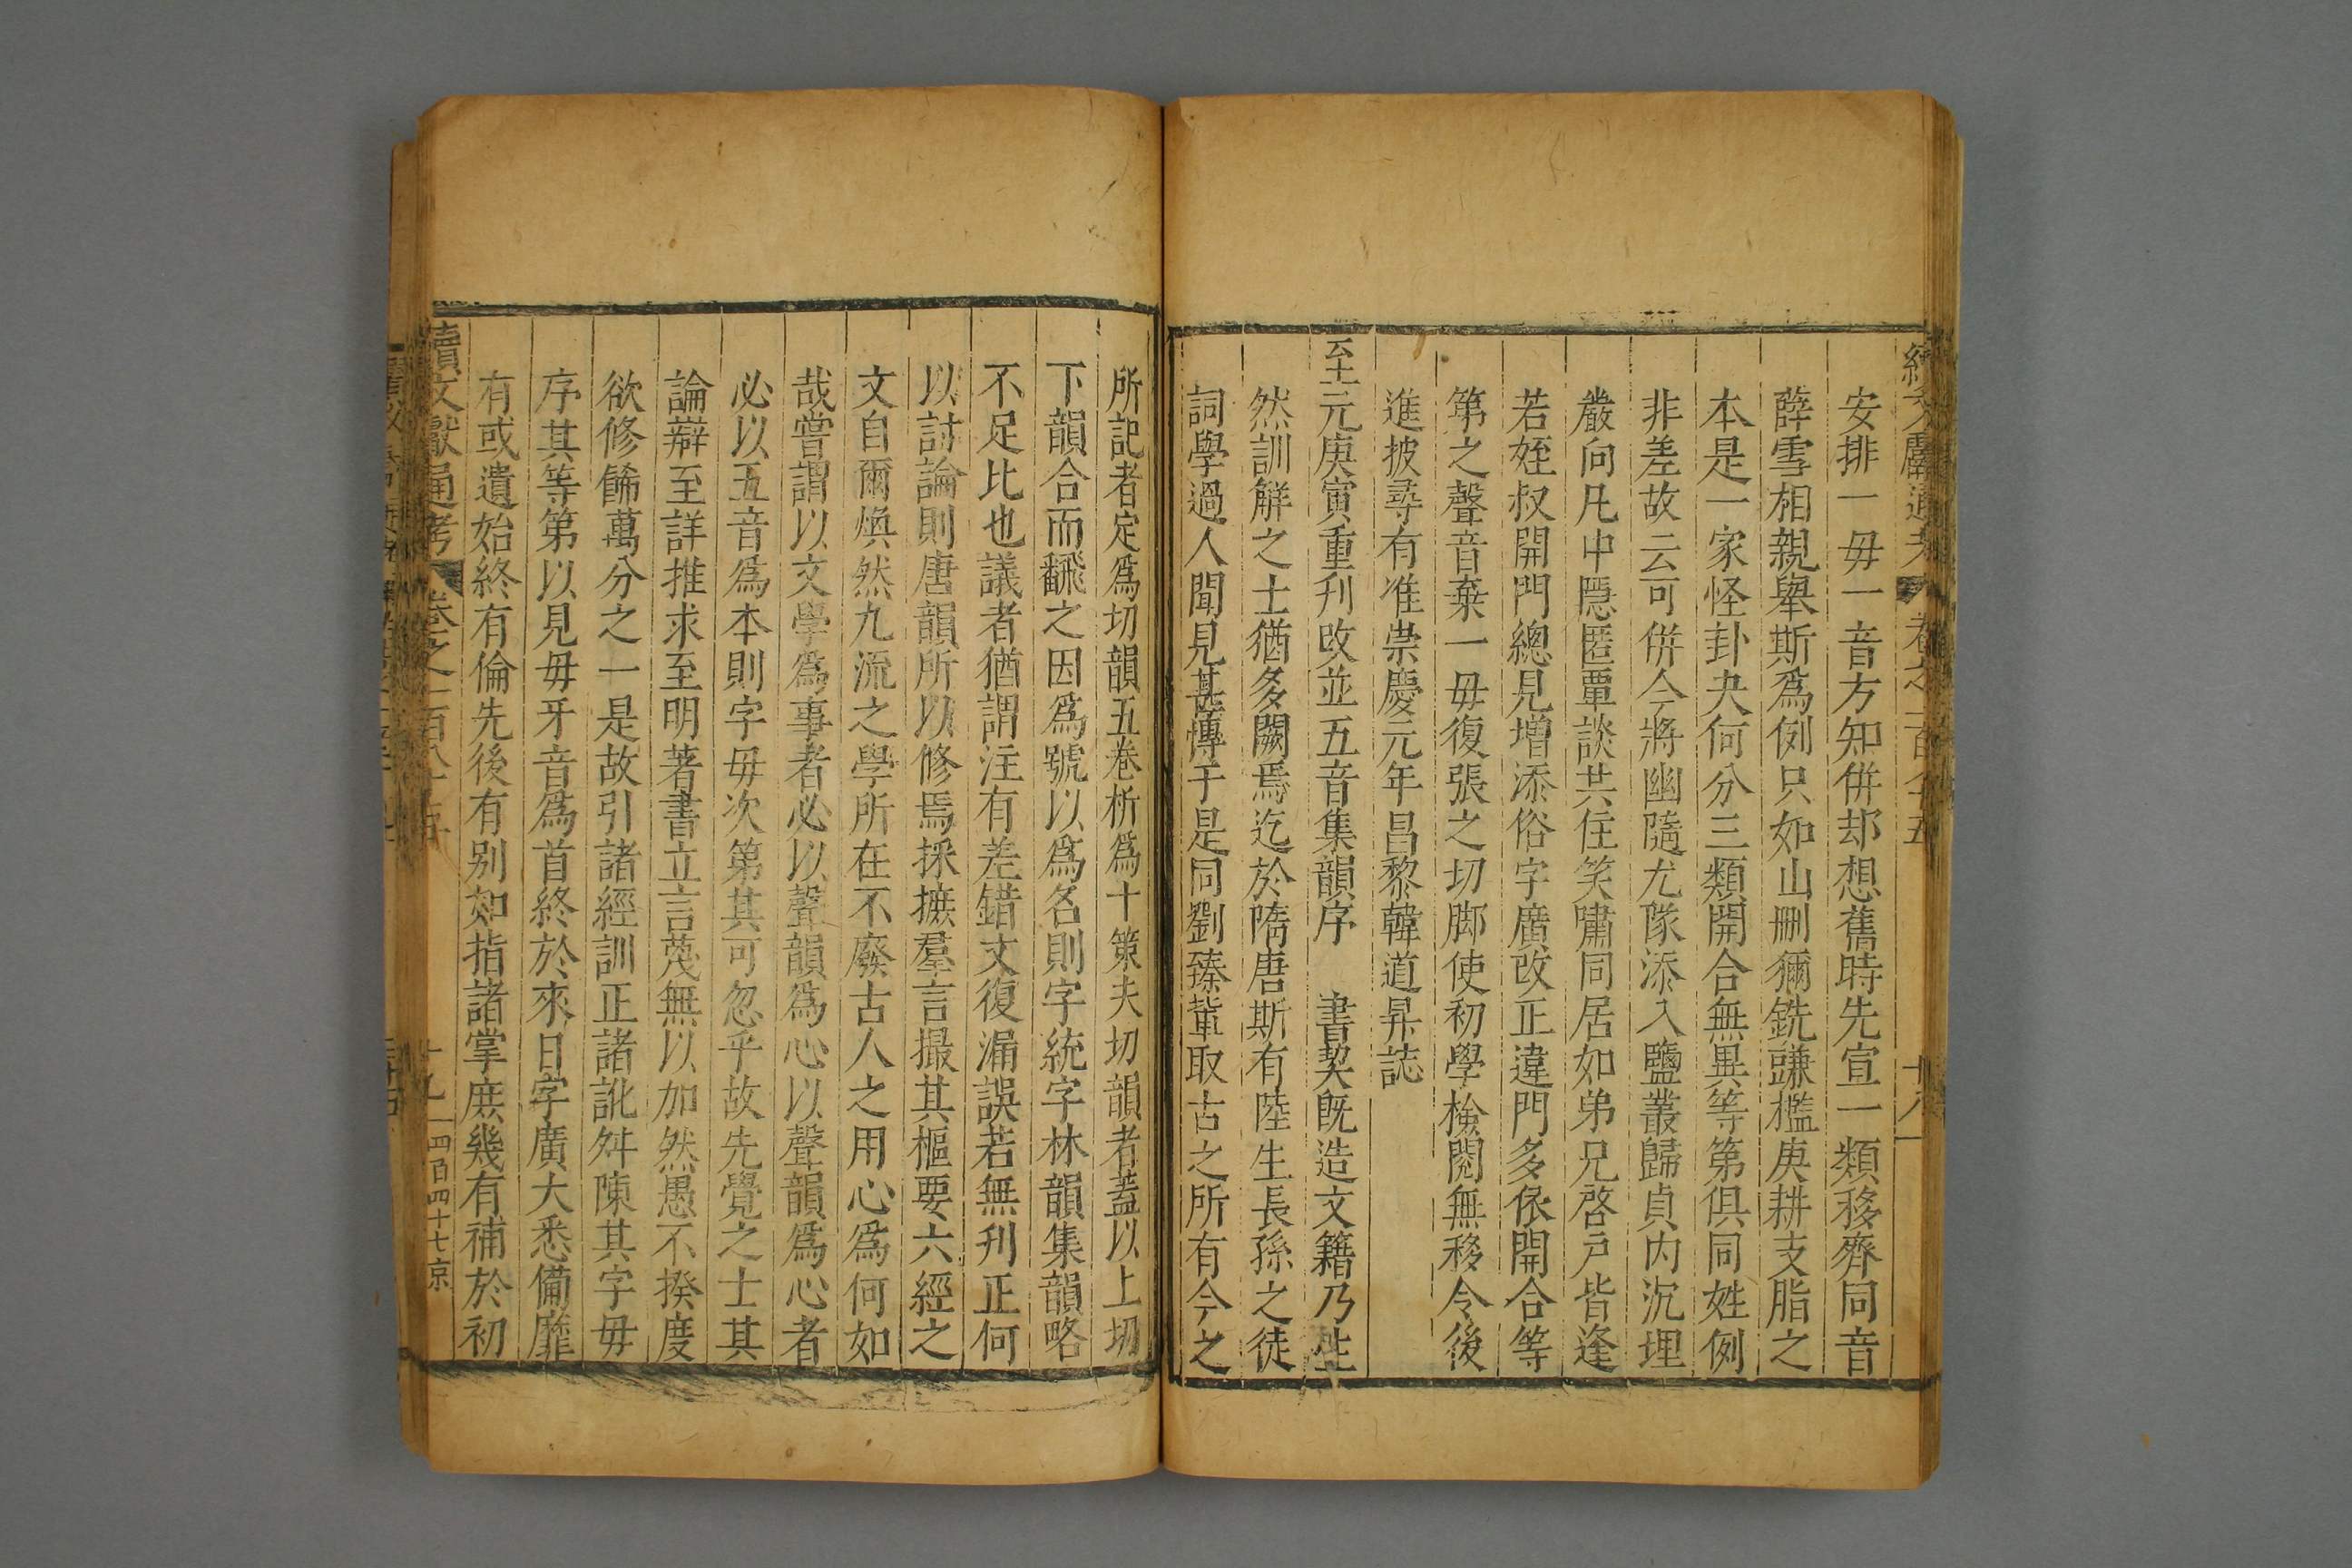 續文獻通考 卷之一百八十五 十八
安排一毋一音方知併却想舊時先宣一類移齊同音
薛雪相親舉斯爲例只如山刪獮銑豏檻庚耕支脂之
本是一家怪卦夬何分三類開合無異等第俱同姓例
非差故云可併今將幽隨尤隊添入鹽叢歸貞内沉埋
嚴向凡中隱匿覃談共住笑嘯同居如弟兄啓戸皆逢
若姪叔開門總見增添俗字廣改正違門多依開合等
第之聲音棄一毋復張之切脚使初學檢閱無移令後
進披尋有准崇慶元年昌黎韓道昇誌
至元庚寅重刋改並五音集韻序 書契旣造文籍乃生
然訓觧之士猶多闕焉迄於隋唐斯有陸生長孫之徒
詞學過人聞見甚慱于是同劉臻輩取古之所有今之
所記者定爲切韻五巻析爲十策夫切韻者蓋以上切
下韻合而飜之因爲號以爲名則字統字林韻集韻略
不足比也議者猶謂注有差錯文復漏誤若無刋正何
以討論則唐韻所以修焉採摭羣言撮其樞要六經之
文自爾煥然九流之學所在不廢古人之用心爲何如
哉嘗謂以文學爲事者必以聲韻爲心以聲韻爲心者
必以五音爲本則字毋次第其可忽乎故先覺之士其
論辯至詳推求至明著書立言蔑無以加然愚不揆度
欲修餙萬分之一是故引諸經訓正諸訛舛陳其字毋
序其等第以見毋牙音爲首終於來日字廣大悉備靡
有或遺始終有倫先後有别如指諸掌庶幾有補於初
續文獻通考 卷之一百八十五 十九 四百四十七 京